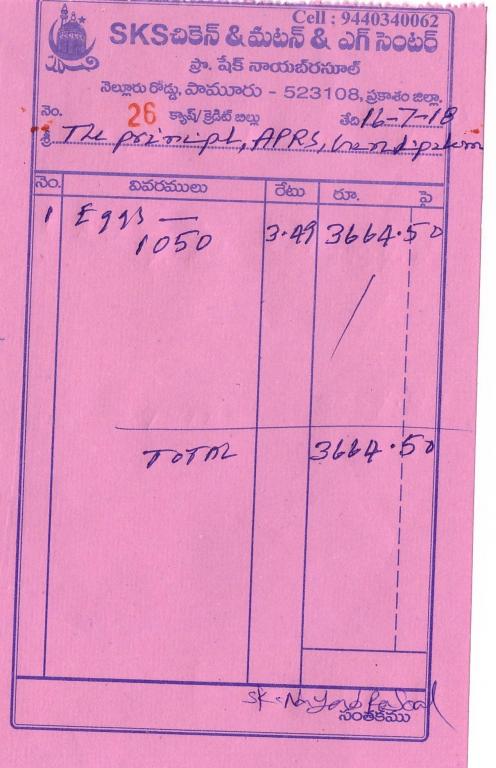 Cell : 9440340062
SKSచికెన్ &మటన్ & ఎగ్ సెంటర్
ప్రొ. షేక్ నాయబ్‌రసూల్
నెల్లూరు రోడ్డు, పామూరు - 523108, ప్రకాశం జిల్లా.
నెం. 26 క్యాష్/క్రెడిట్ బిల్లు తేది 16-7-18
శ్రీ The principl, APRS,
నెం. వివరములు రేటు రూ. పై
1 Eggs —
1050 3.49 3664.50
TOTAL 3664.50
SK. Nayab Rasool
సంతకము